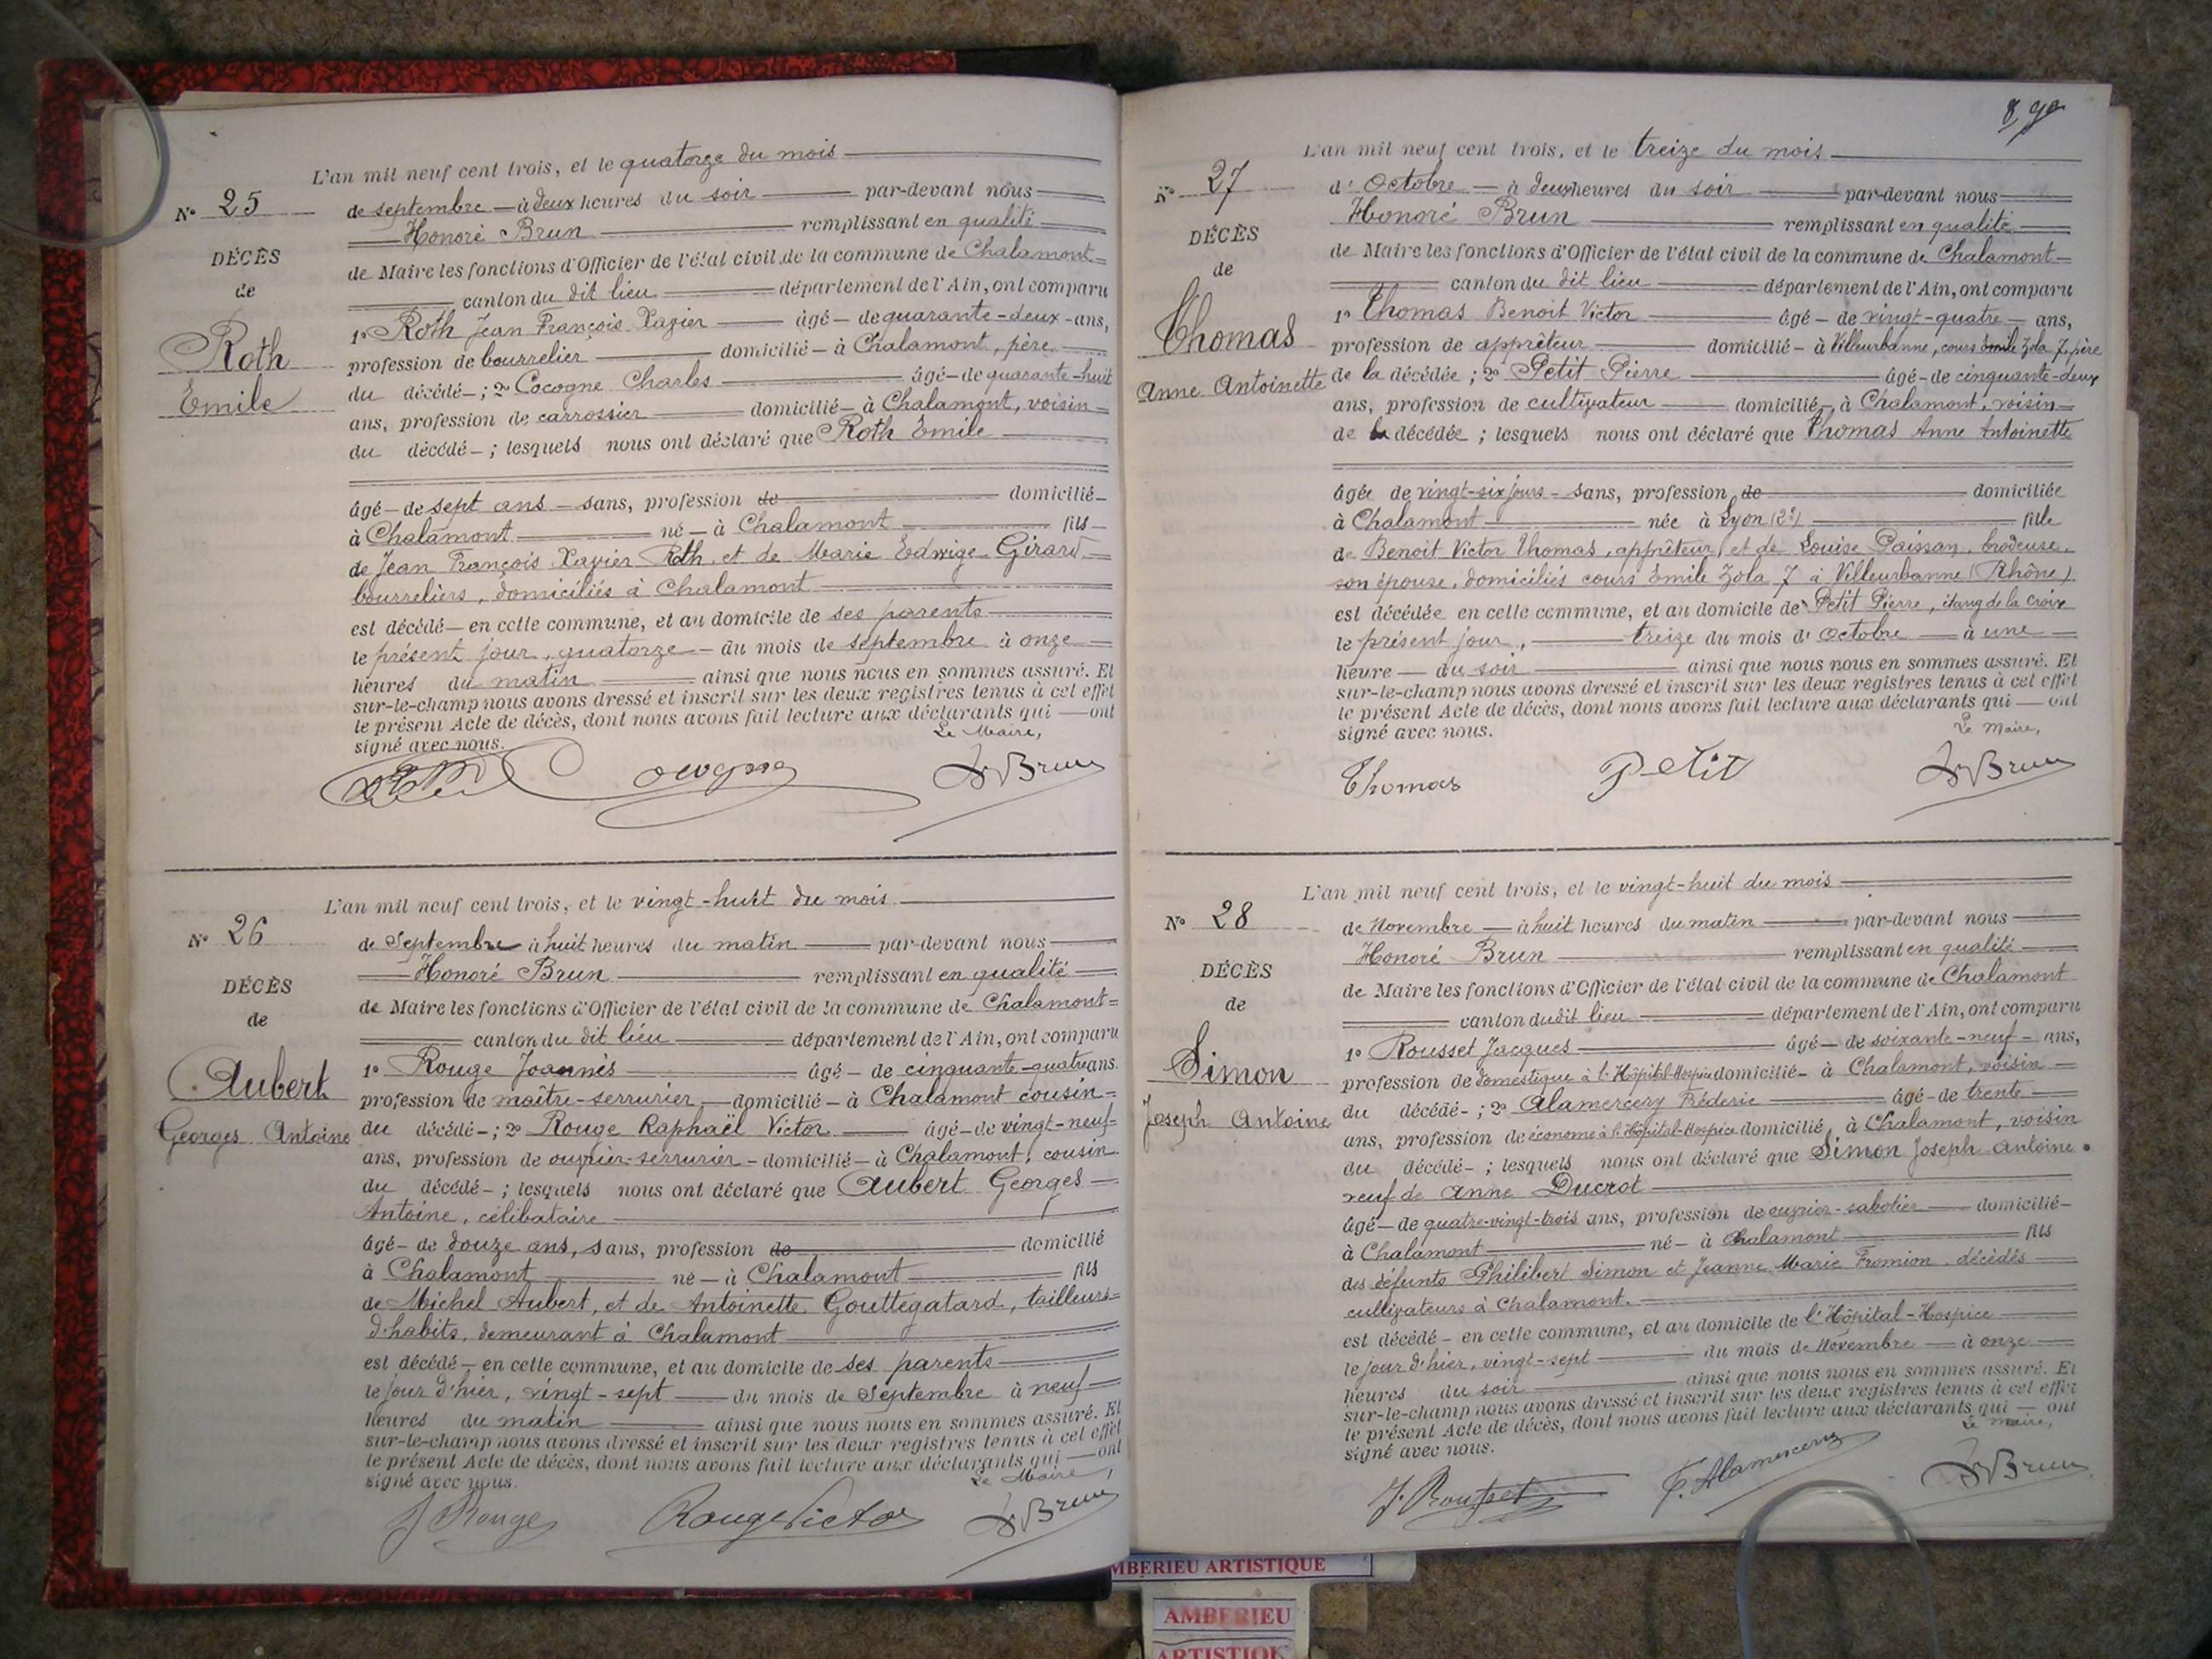 L'an mil neuf cent trois, et le quatorze du mois
N° 25
de septembre à deux heures du soir par-devant nous
Honoré Brun remplissant en qualité
DÉCÈS
de Maire les fonctions d'Officier de l'état civil de la commune de Chalamont
de
canton du dit lieu département de l'Ain, ont comparu
Roth
1° Roth Jean François Xavier âgé de quarante-deux ans,
profession de bourrelier domicilié à Chalamont, père
Emile
du décédé ; 2° Cocogne Charles âgé de quarante-huit
ans, profession de carrossier domicilié à Chalamont, voisin
du décédé ; lesquels nous ont déclaré que Roth Emile
âgé de sept ans sans, profession de domicilié
à Chalamont né à Chalamont fils
de Jean François Xavier Roth et de Marie Edwige Girard
bourreliers, domiciliés à Chalamont
est décédé en cette commune, et au domicile de ses parents
le présent jour, quatorze du mois de septembre à onze
heures du matin ainsi que nous nous en sommes assuré. Et
sur-le-champ nous avons dressé et inscrit sur les deux registres tenus à cet effet
le présent Acte de décès, dont nous avons fait lecture aux déclarants qui ont
signé avec nous.
Le Maire,
Cocogne
Brun
L'an mil neuf cent trois, et le vingt-huit du mois
N° 26
de Septembre à huit heures du matin par-devant nous
Honoré Brun remplissant en qualité
DÉCÈS
de Maire les fonctions d'Officier de l'état civil de la commune de Chalamont
de
canton du dit lieu département de l'Ain, ont comparu
Aubert
1° Rouge Joannès âgé de cinquante-quatre ans.
profession de maître-serrurier domicilié à Chalamont cousin
Georges Antoine
du décédé ; 2° Rouge Raphaël Victor âgé de vingt-neuf
ans, profession de ouvrier-serrurier domicilié à Chalamont, cousin
du décédé ; lesquels nous ont déclaré que Aubert Georges
Antoine, célibataire
âgé de douze ans, sans, profession de domicilié
à Chalamont né à Chalamont fils
de Michel Aubert, et de Antoinette Gouttegatard, tailleurs
d'habits, demeurant à Chalamont
est décédé en cette commune, et au domicile de ses parents
le jour d'hier, vingt-sept du mois de Septembre à neuf
heures du matin ainsi que nous nous en sommes assuré. Et
sur-le-champ nous avons dressé et inscrit sur les deux registres tenus à cet effet
le présent Acte de décès, dont nous avons fait lecture aux déclarants qui ont
signé avec nous.
Le Maire,
J Rouge
Rouge Victor
Brun
L'an mil neuf cent trois, et le treize du mois
N° 27
d'Octobre à deux heures du soir par-devant nous
Honoré Brun remplissant en qualité
DÉCÈS
de Maire les fonctions d'Officier de l'état civil de la commune de Chalamont
de
canton du dit lieu département de l'Ain, ont comparu
Thomas
1° Thomas Benoit Victor âgé de vingt-quatre ans,
profession de apprêteur domicilié à Villeurbanne, cours Emile Zola 7, père
Anne Antoinette
de la décédée ; 2° Petit Pierre âgé de cinquante-deux
ans, profession de cultivateur domicilié à Chalamont, voisin
de la décédée ; lesquels nous ont déclaré que Thomas Anne Antoinette
âgée de vingt-six jours sans, profession de domiciliée
à Chalamont née à Lyon (2e) fille
de Benoit Victor Thomas, apprêteur, et de Louise brodeuse,
son épouse, domiciliés cours Emile Zola 7 à Villeurbanne (Rhône)
est décédée en cette commune, et au domicile de Petit Pierre, étang de la Croix
le présent jour, treize du mois d'Octobre à une
heure du soir ainsi que nous nous en sommes assuré. Et
sur-le-champ nous avons dressé et inscrit sur les deux registres tenus à cet effet
le présent Acte de décès, dont nous avons fait lecture aux déclarants qui ont
signé avec nous.
Le Maire,
Thomas
Petit
Brun
L'an mil neuf cent trois, et le vingt-huit du mois
N° 28
de Novembre à huit heures du matin par-devant nous
Honoré Brun remplissant en qualité
DÉCÈS
de Maire les fonctions d'Officier de l'état civil de la commune de Chalamont
de
canton du dit lieu département de l'Ain, ont comparu
Simon
1° Rousset Jacques âgé de soixante-neuf ans,
profession de domestique à l'Hôpital-Hospice domicilié à Chalamont, voisin
Joseph Antoine
du décédé ; 2° Alamercery Fréderic âgé de trente
ans, profession de économe à l'Hôpital-Hospice domicilié à Chalamont, voisin
du décédé ; lesquels nous ont déclaré que Simon Joseph Antoine
veuf de Anne Ducrot
âgé de quatre-vingt-trois ans, profession de ouvrier-sabotier domicilié
à Chalamont né à Chalamont fils
des défunts Philibert Simon et Jeanne Marie Fromion, décédés
cultivateurs à Chalamont.
est décédé en cette commune, et au domicile de l'Hôpital-Hospice
le jour d'hier, vingt-sept du mois de Novembre à onze
heures du soir ainsi que nous nous en sommes assuré. Et
sur-le-champ nous avons dressé et inscrit sur les deux registres tenus à cet effet
le présent Acte de décès, dont nous avons fait lecture aux déclarants qui ont
signé avec nous.
Le maire,
J. Rousset
F. Alamercery
Brun
AMBERIEU ARTISTIQUE
AMBERIEU
ARTISTIQUE